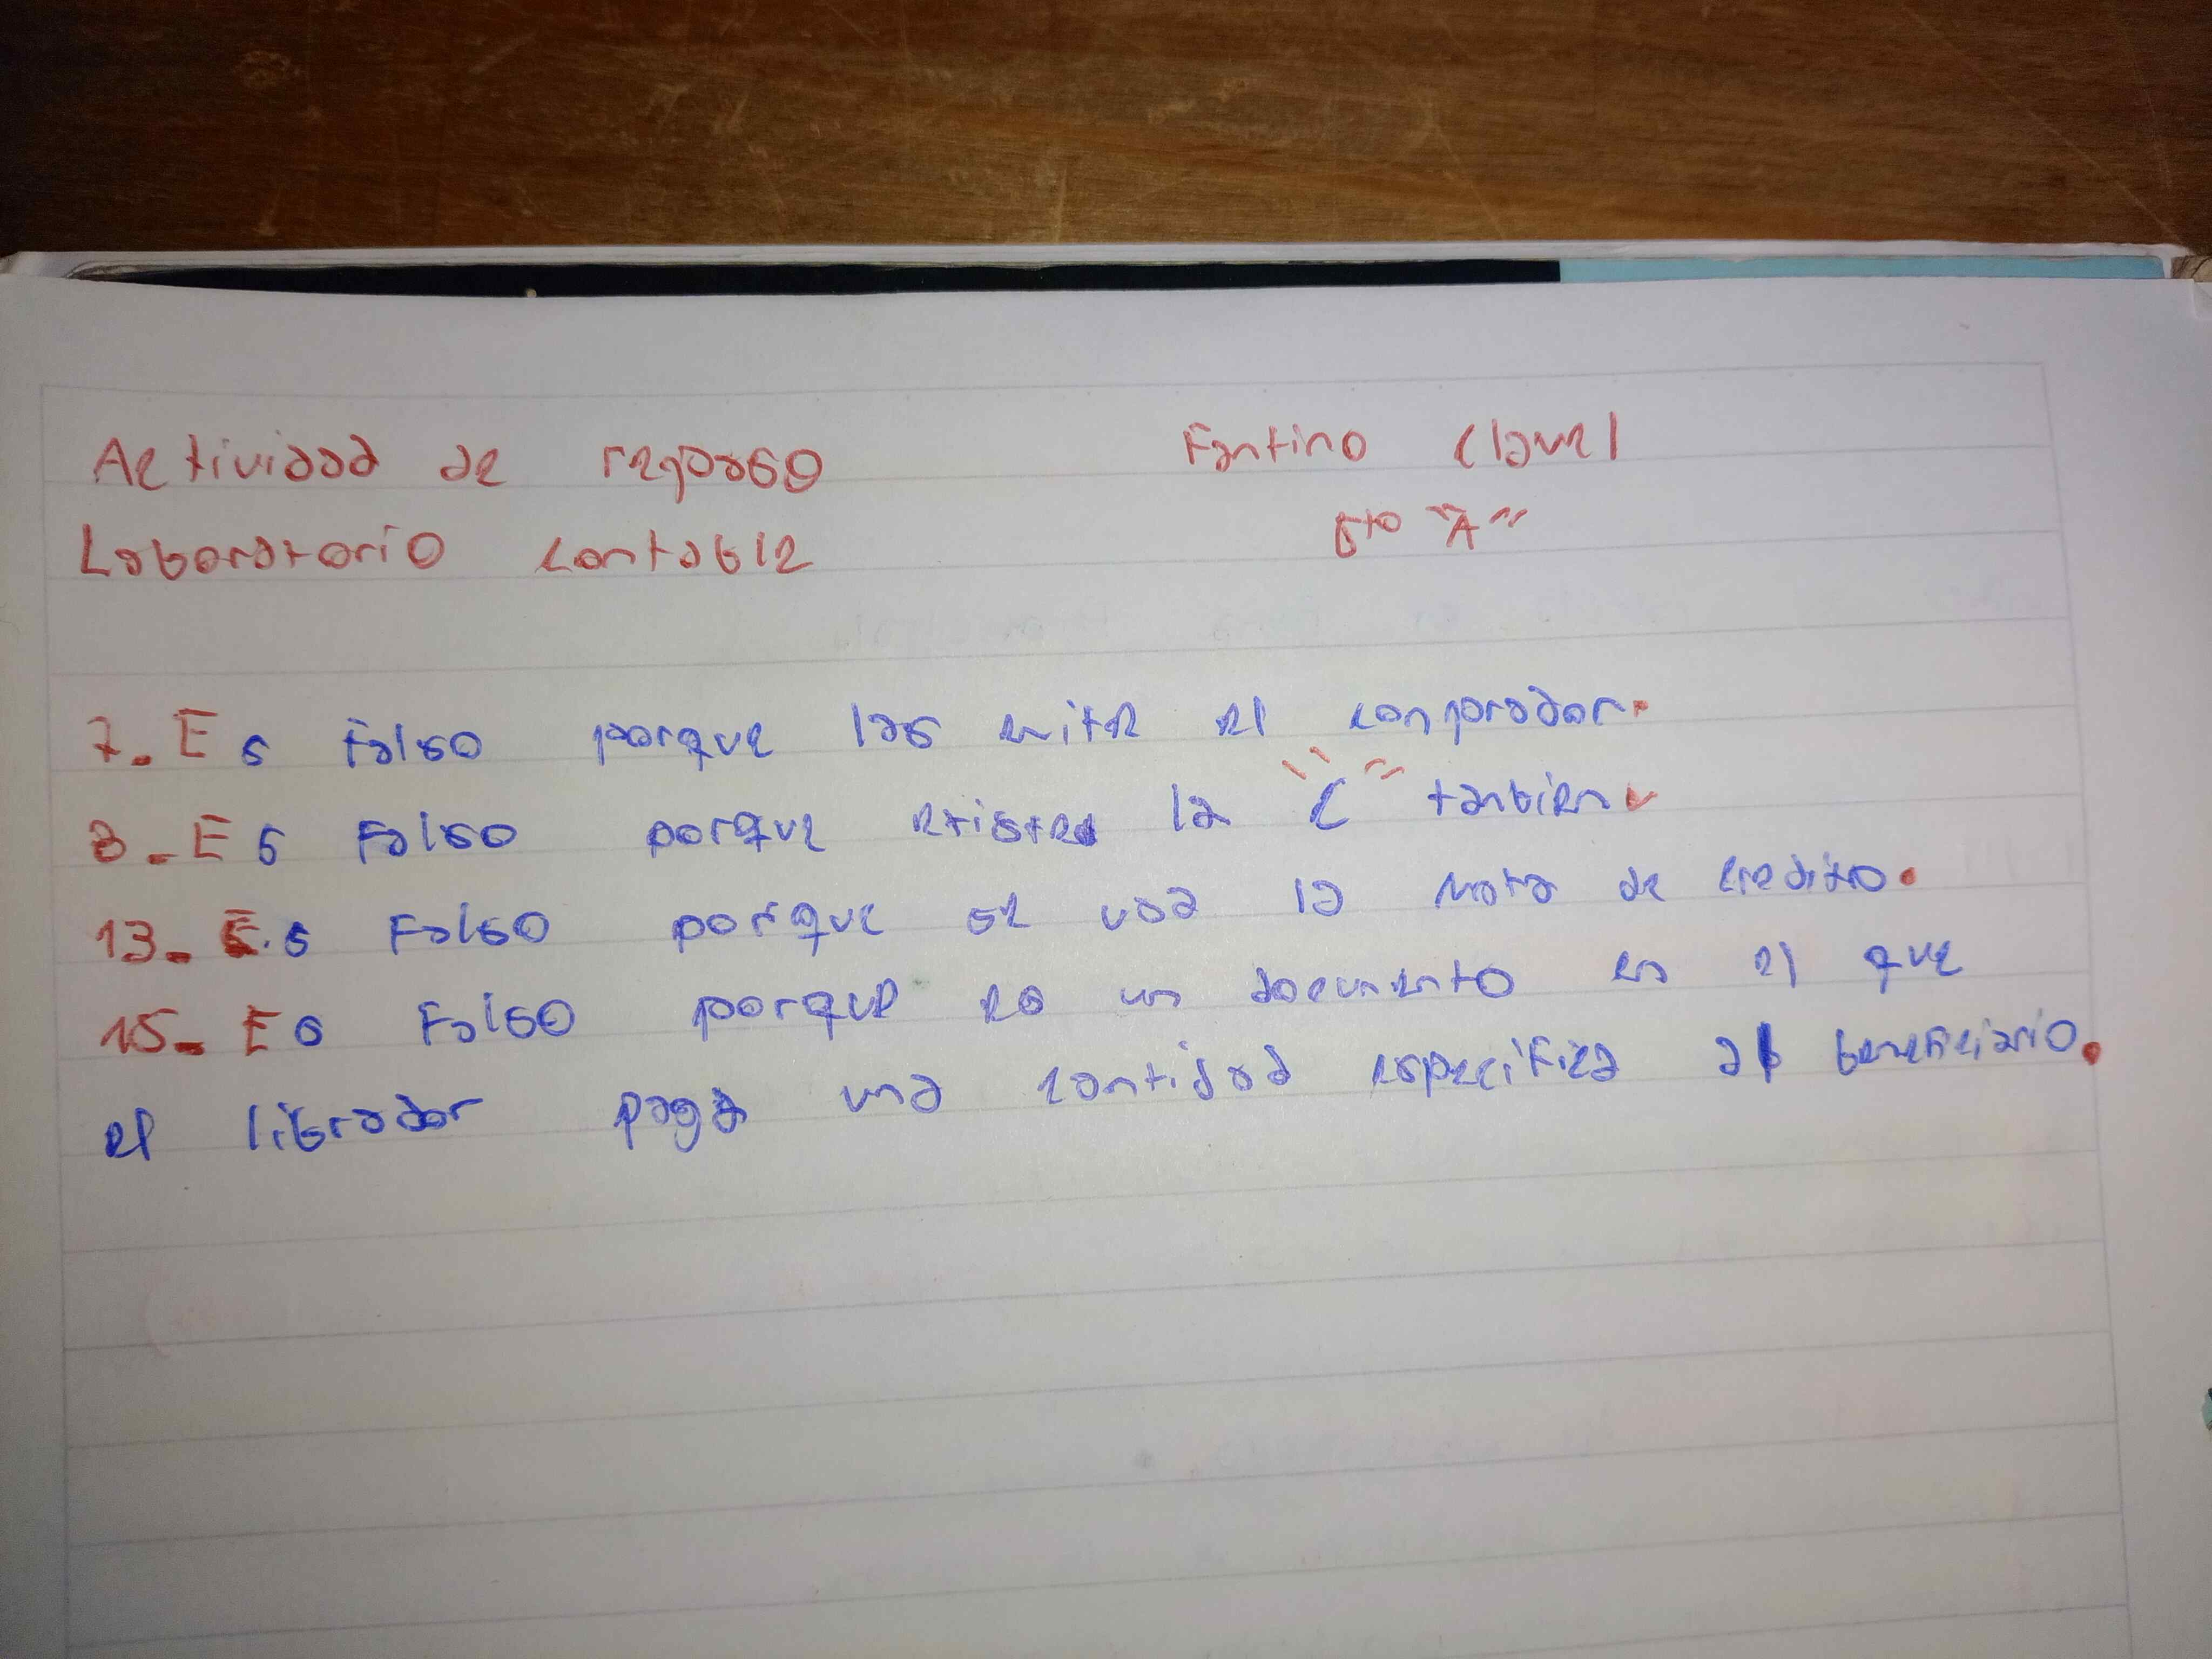 Actividad de repaso
Fantino Clavel
Laboratorio contable
5to "A"
7- Es Falso porque las emite el conprador.
8- Es Falso porque existe la "C" tanbien.
13- Es Falso porque se usa la nota de credito.
15- Es Falso porque es un documento en el que
el librador paga una cantidad especifica al beneficiario.